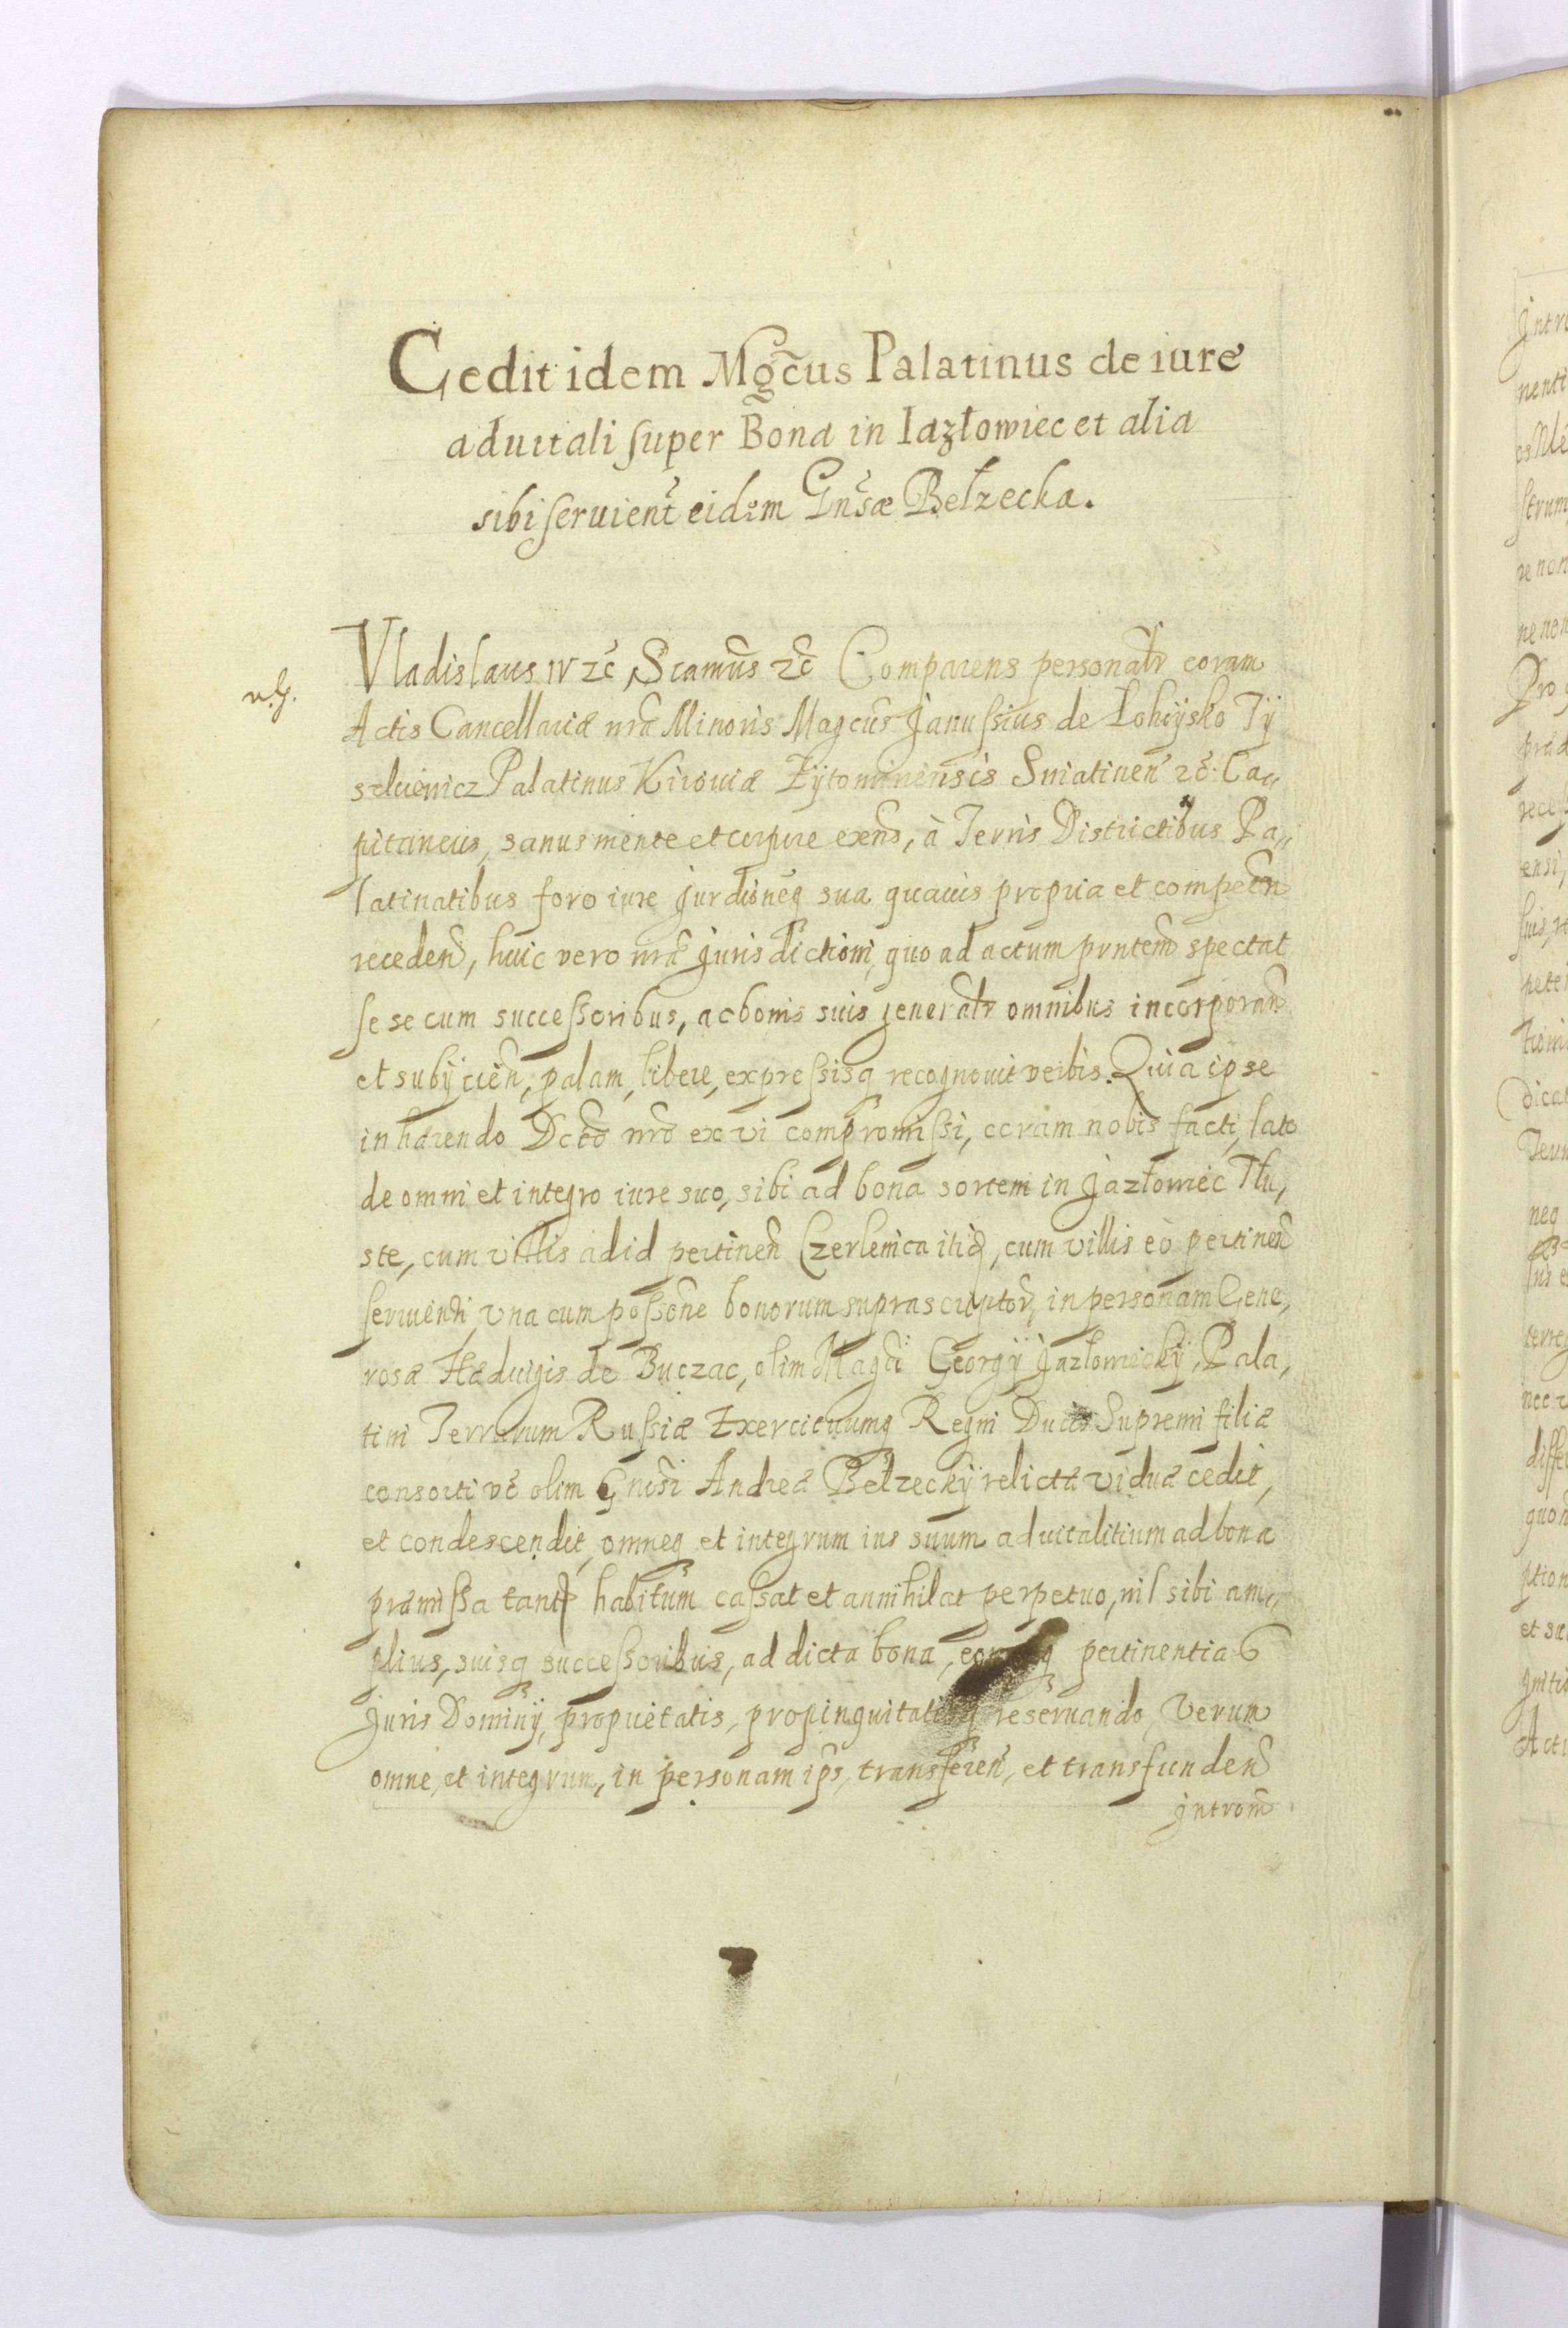 Cedit idem Mgcũs Palatinus de iure
aduitali super Bona in Iazłowiec et alia
sibi seruient̃ eidem Gnsæ Bełzecka.
Vladislaus IV zc̃ Scamũs zc̃ Comparens personalr̃ coram
Actis Cancellariæ nrã Minoris Magcũs Janussius de Łohoysko Tÿ
szkiewicz Palatinus Kiiouiæ Zÿtominensis Sniatinen̄ zc̃: Ca„
pitaneus, sanus mente et corpore exens, à Terris Districtibus Pa„
latinatibus foro iure jurdiõneq sua quauis propria et competen̄
receden̄, huic vero nrã jurisdictioni, quo ad actum pñntem spectat
se se cum successoribus, ac bonis suis generalr̃ omnibus incorporan̄
et subijcien̄, palam, libere, expressisq recognouit verbis. Quia ipse
inhærendo Dcto nrõ ex vi compromissi, coram nobis facti, lato
de omni et integro iure suo, sibi ad bona sortem in Jazłowiec Tłu,
ste, cum villis ad id pertinen̄ Czerlenica itid, cum villis eò pertinen̄
seruienti, vna cum possõne bonorum suprascriptor, in personam Gene,
rosæ Hæduigis de Buczac, olim Magci Georgÿ Jazłowieckÿ, Pala,
tini Terrarum Russiæ Exercituumq Regni Ducis Supremi filiæ
consorti vẽ olim Gnosi Andreæ Bełzeckÿ relictæ viduæ cedit,
et condescendit, omneq et integrum ius suum aduitalitium ad bona
præmissa tantp habitum cassat et annihilat perpetuo, nil sibi am„
plius, suisq successoribus, ad dicta bona, eorumq pertinentia
Juris Dominÿ, proprietatis, propinquitatisq reseruando, Verum
omne, et integrum, in personam ips, transferen̄, et transfunden̄
jntrom̃